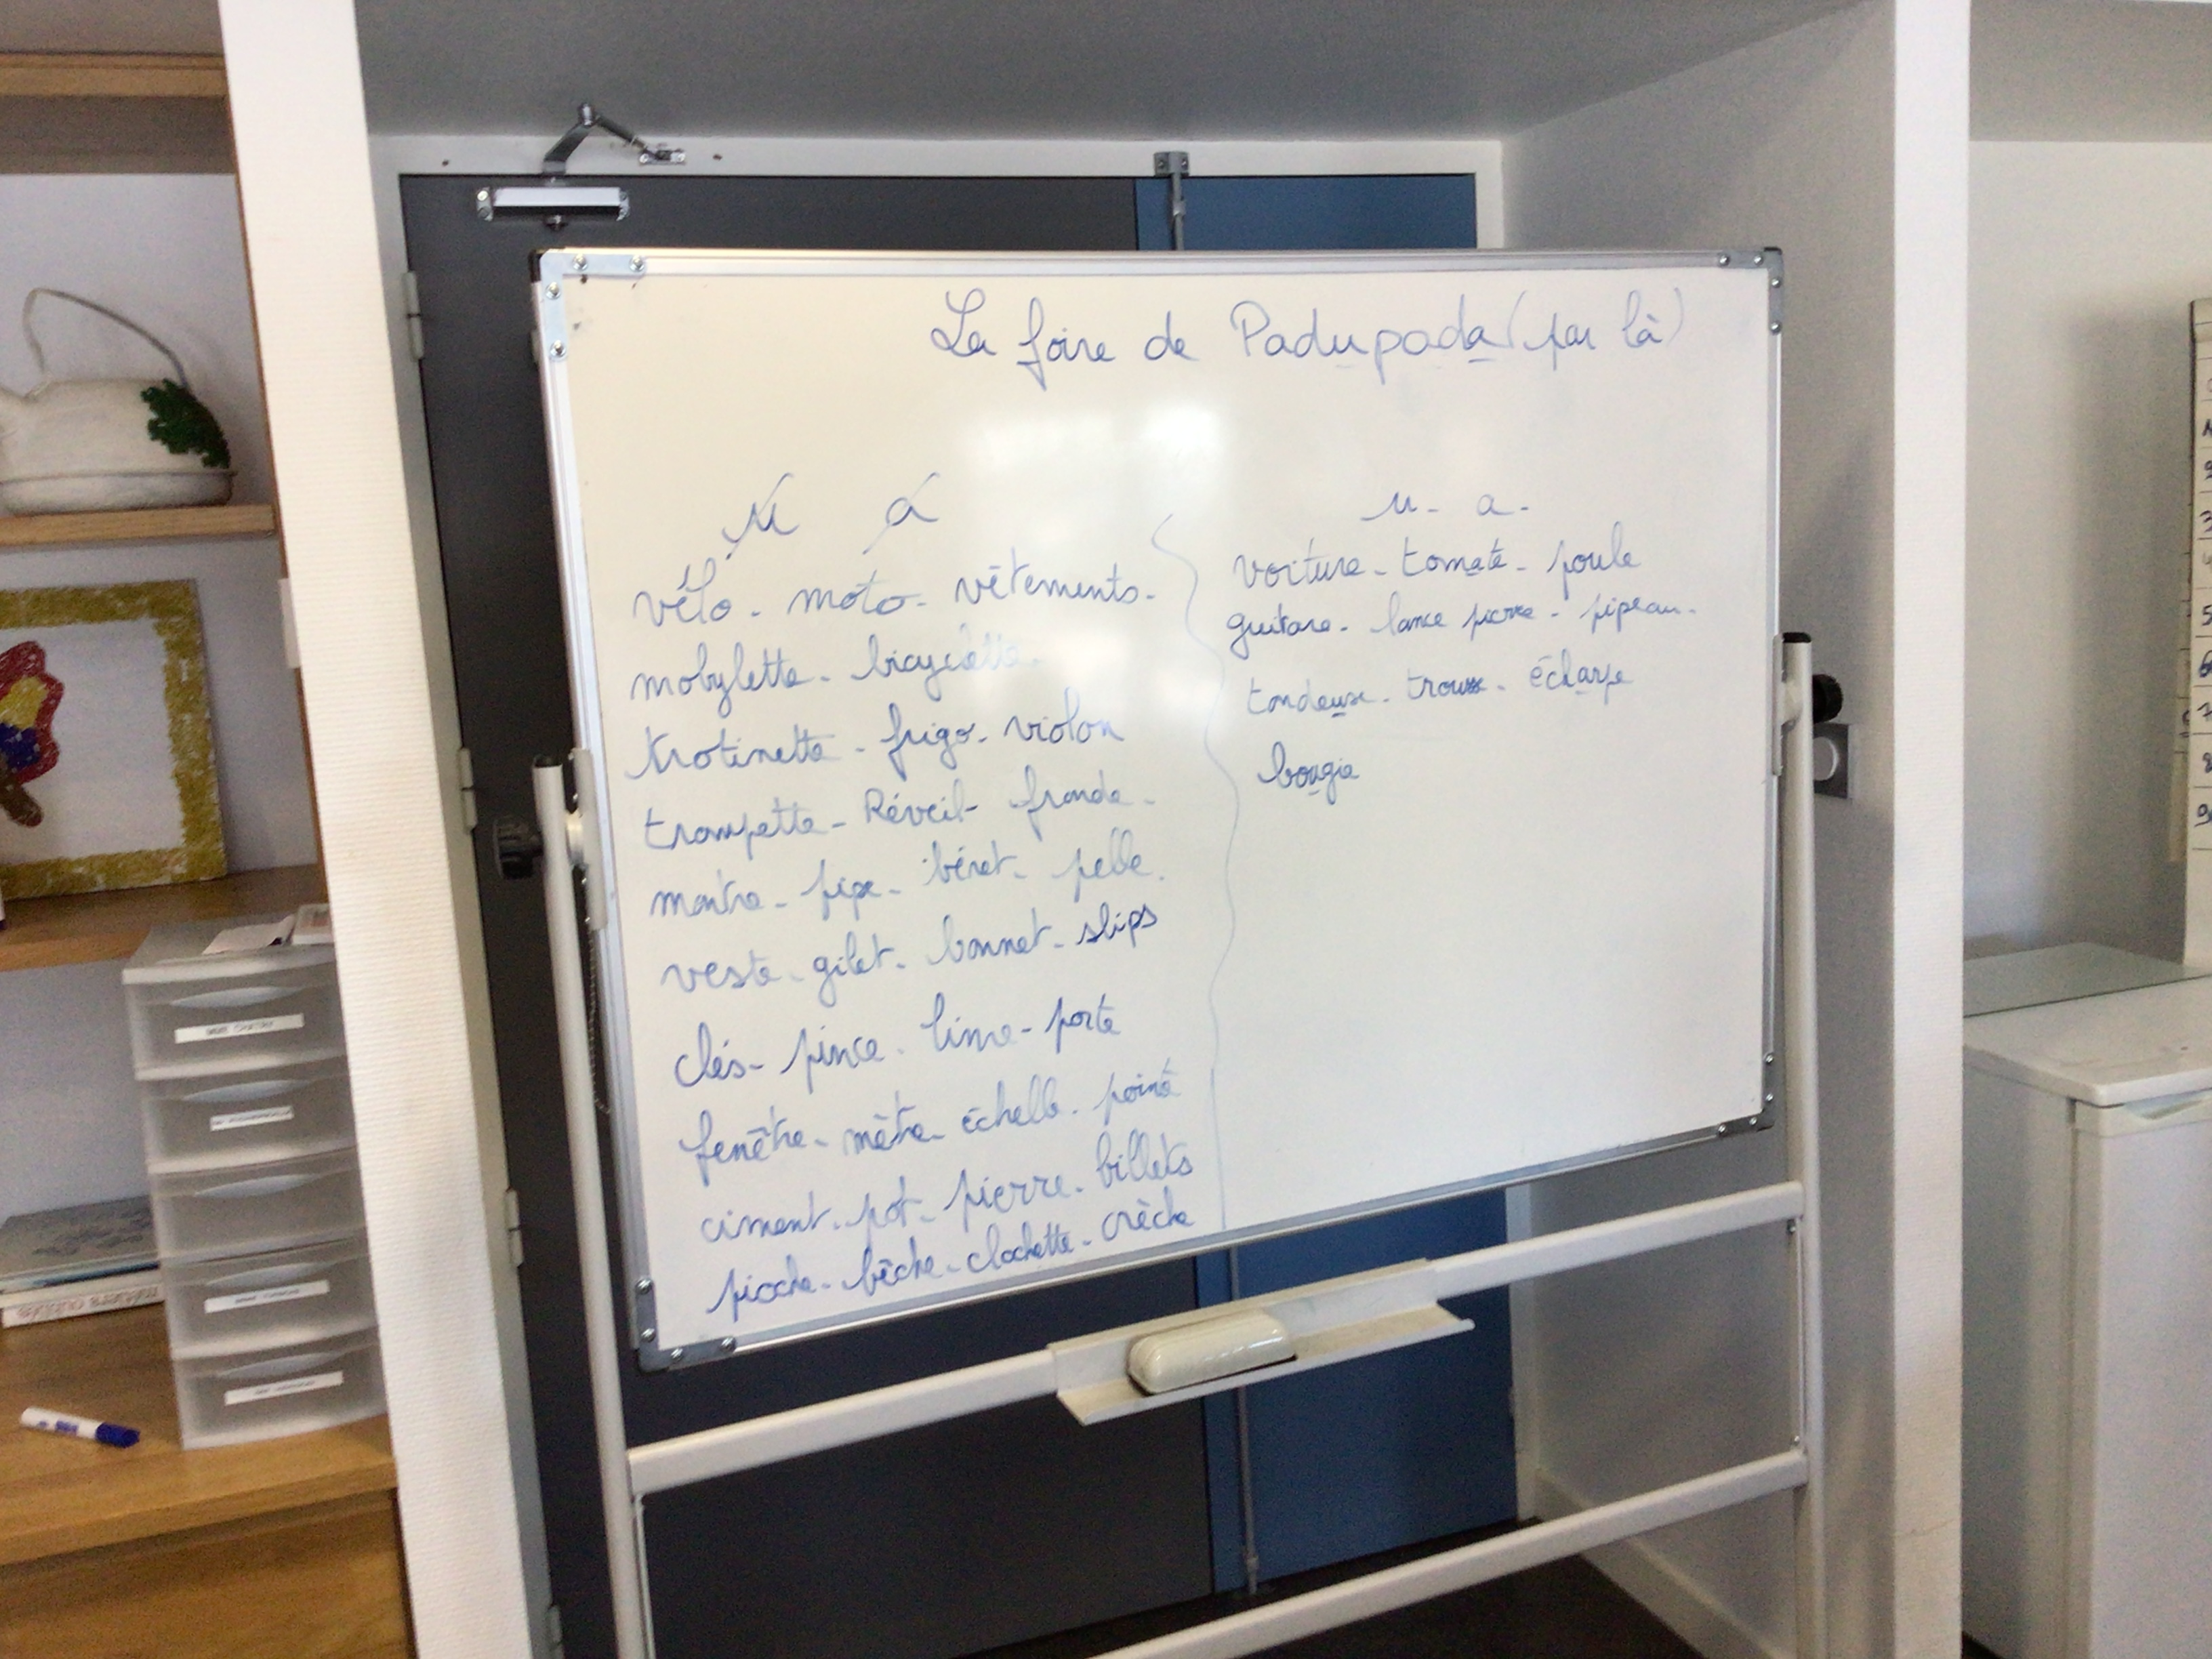 La foire de Padupada (par là)
u a
vélo - moto - vêtements -
mobylette - bicyclette
trotinette - frigo - violon
trompette - Réveil - fronde -
montre - pipe - béret - pelle.
veste - gilet - bonnet - slips
clés - pince - lime - porte
fenêtre - mètre - échelle -
ciment - pot - pierre - billets
pioche - bêche - clochette - crèche
u - a -
voiture - tomate - poule
guitare - lance pierre - pipeau -
tondeuse - trousse - écharpe
bougie
métiers oubliés